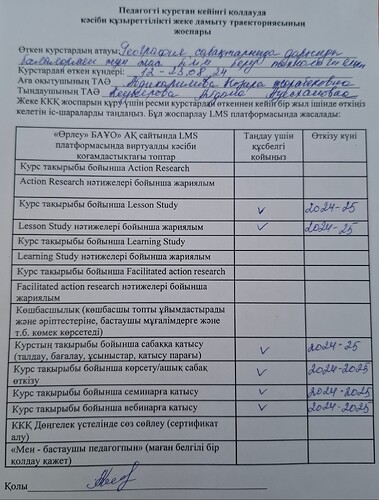 Педагогті курстан кейінгі қолдауда
кәсіби құзыреттілікті жеке дамыту траекториясының
жоспары
Өткен курстардың атауы География сабақтарында дарынды
Курстардан өткен күндері: 12-23.08.24
Аға оқытушының ТАӘ
Тыңдаушының ТАӘ
Жеке ККҚ жоспарын құру үшін ресми курстардан өткеннен кейінгі бір жыл ішінде өткізіңіз
келетін іс-шараларды таңдаңыз. Бұл жоспарлау LMS платформасында жасалады:
«Өрлеу» БАҰО» АҚ сайтында LMS платформасында виртуалды кәсіби қоғамдастықтағы топтар Таңдау үшін құсбелгі қойыңыз Өткізу күні
Курс тақырыбы бойынша Action Research
Action Research нәтижелері бойынша жариялым
Курс тақырыбы бойынша Lesson Study ✓ 2024-25
Lesson Study нәтижелері бойынша жариялым ✓ 2024-25
Курс тақырыбы бойынша Learning Study
Learning Study нәтижелері бойынша жариялым
Курс тақырыбы бойынша Facilitated action research
Facilitated action research нәтижелері бойынша
жариялым
Көшбасшылық (көшбасшы топты ұйымдастырады
және әріптестеріне, бастаушы мұғалімдерге және
т.б. көмек көрсетеді)
Курстың тақырыбы бойынша сабаққа қатысу ✓ 2024-25
(талдау, бағалау, ұсыныстар, қатысу парағы)
Курс тақырыбы бойынша көрсету/ашық сабақ ✓ 2024-2025
өткізу
Курс тақырыбы бойынша семинарға қатысу ✓ 2024-2025
Курс тақырыбы бойынша вебинарға қатысу ✓ 2024-2025
ККҚ Дөңгелек үстелінде сөз сөйлеу (сертификат
алу)
«Мен - бастаушы педагогпын» (маған белгілі бір
қолдау қажет)
Қолы